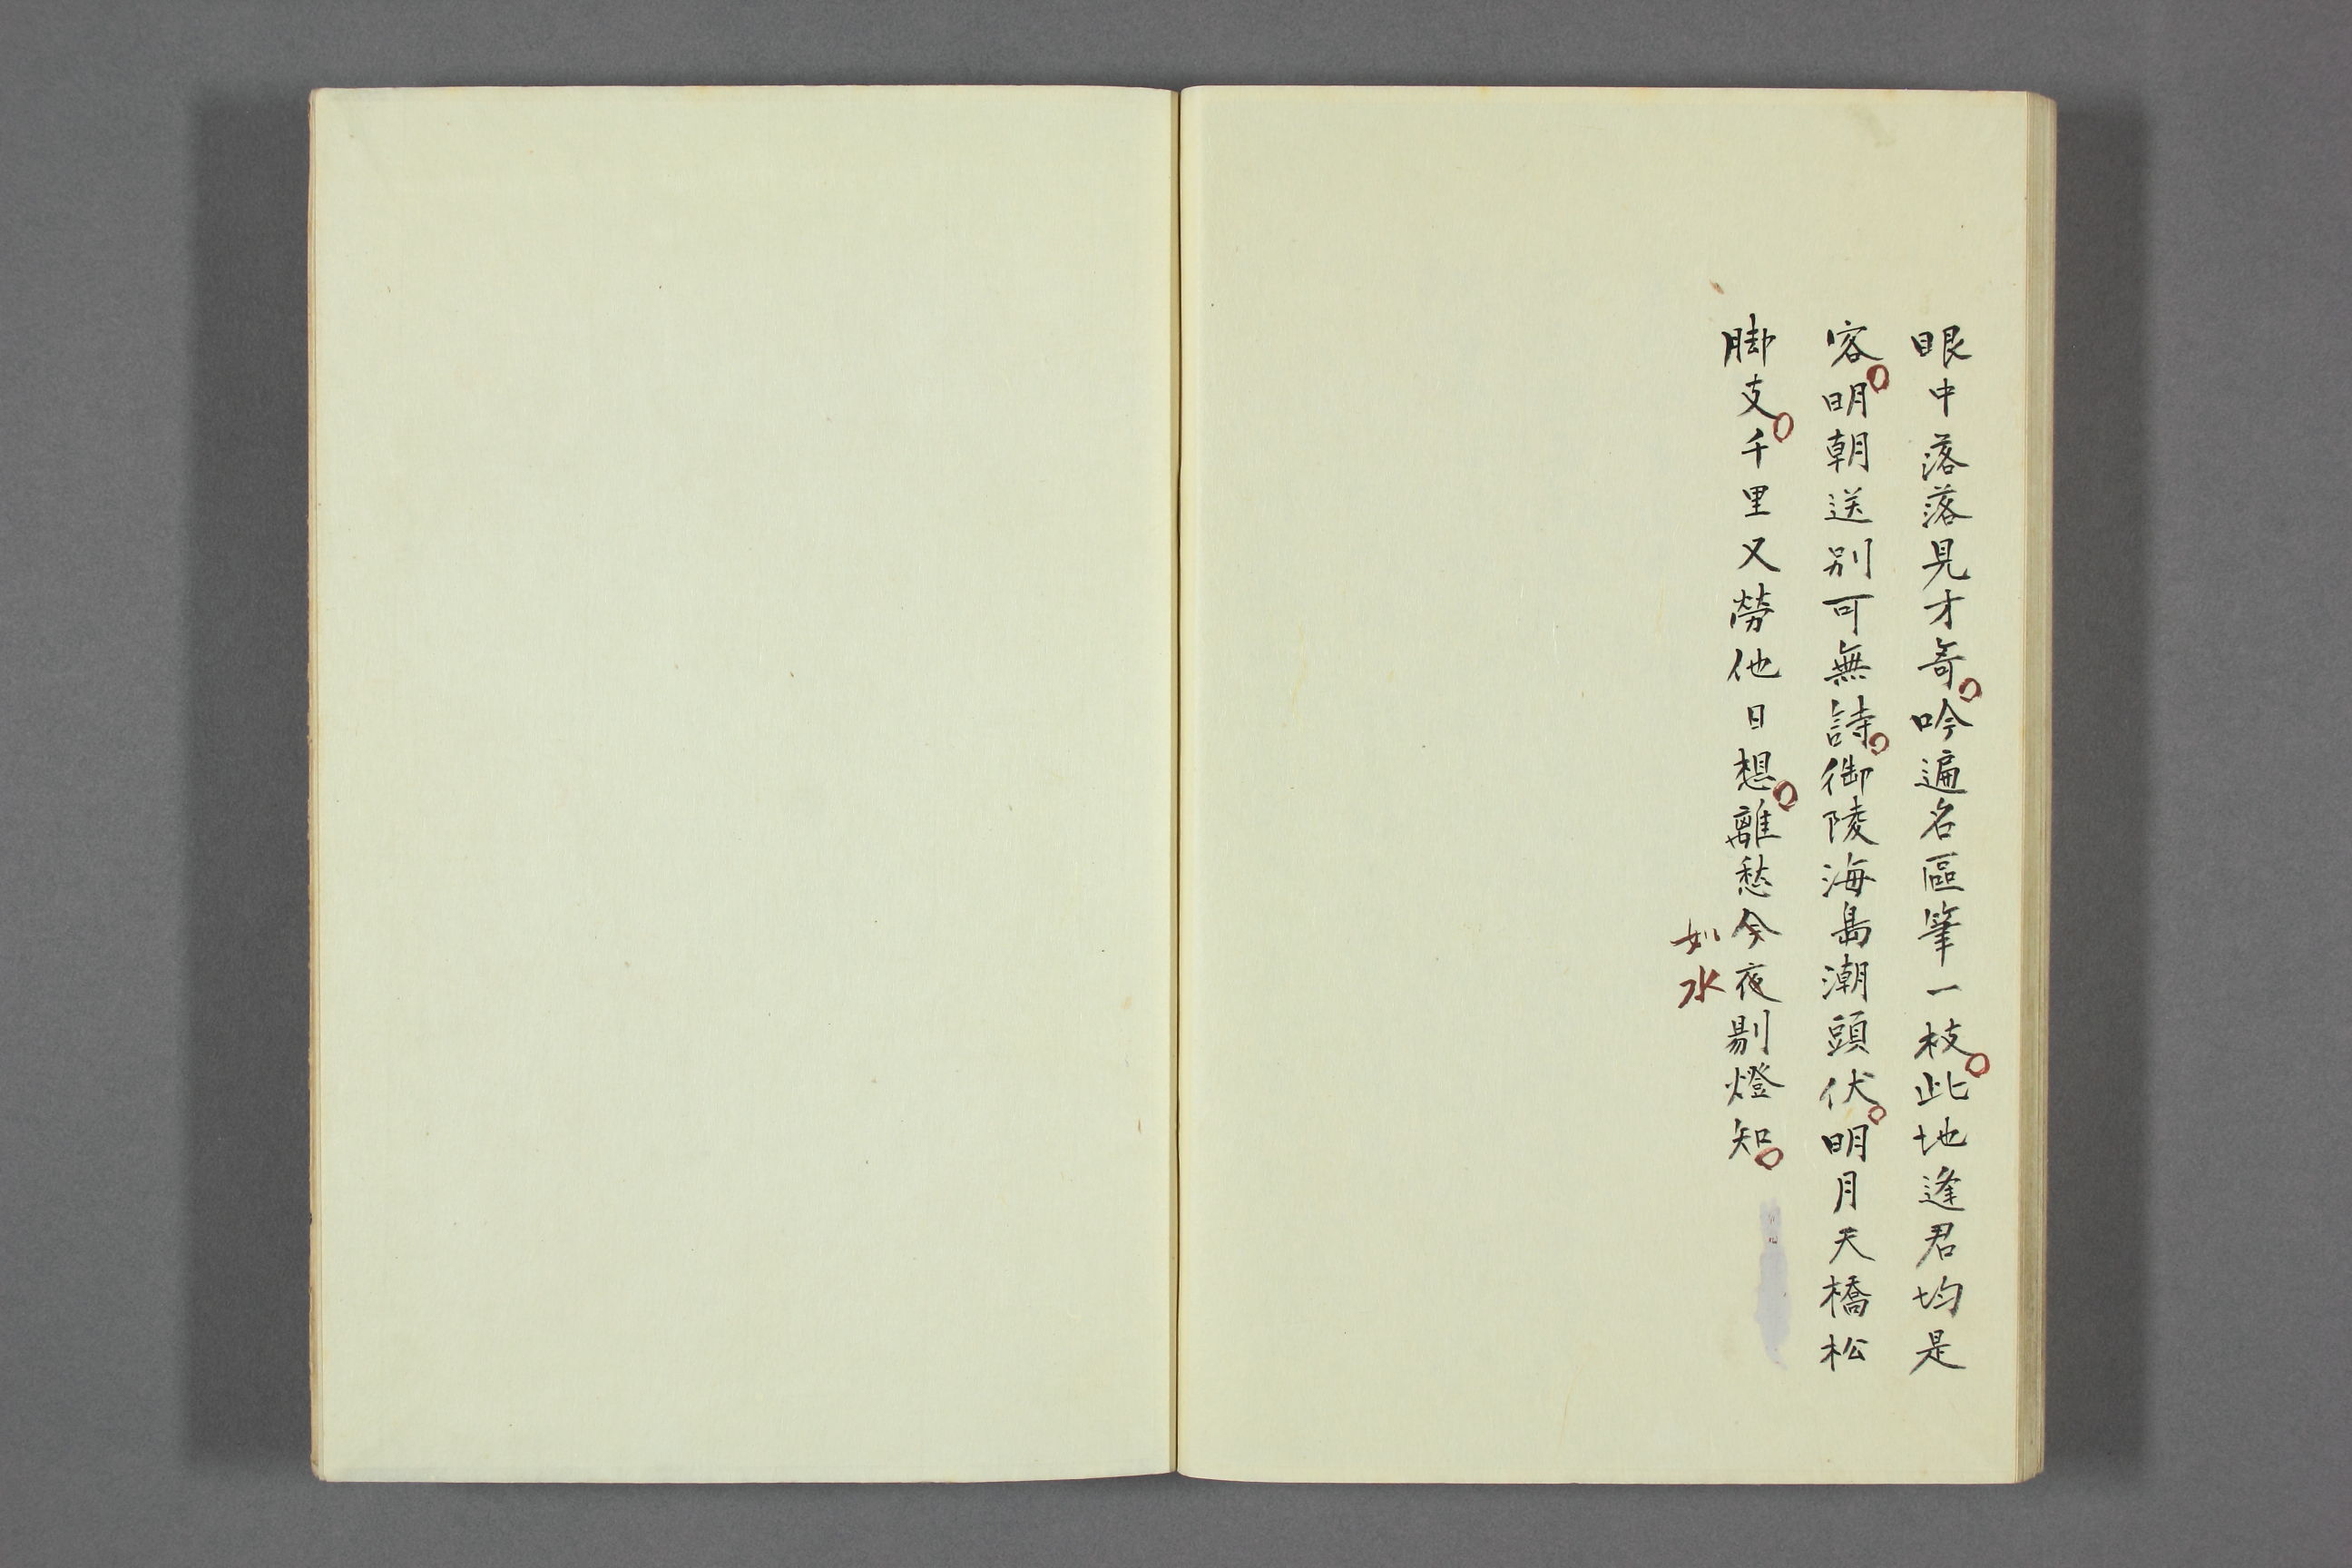 眼中落落見才奇。吟遍名區筆一枝。此地逢君均是
客。明朝送別可無詩。御陵海島潮頭伏。明月天橋松
脚支。千里又勞他日想。離愁今夜剔燈知。
如水